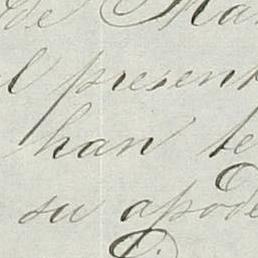 de Ma
l present
han te
su apode